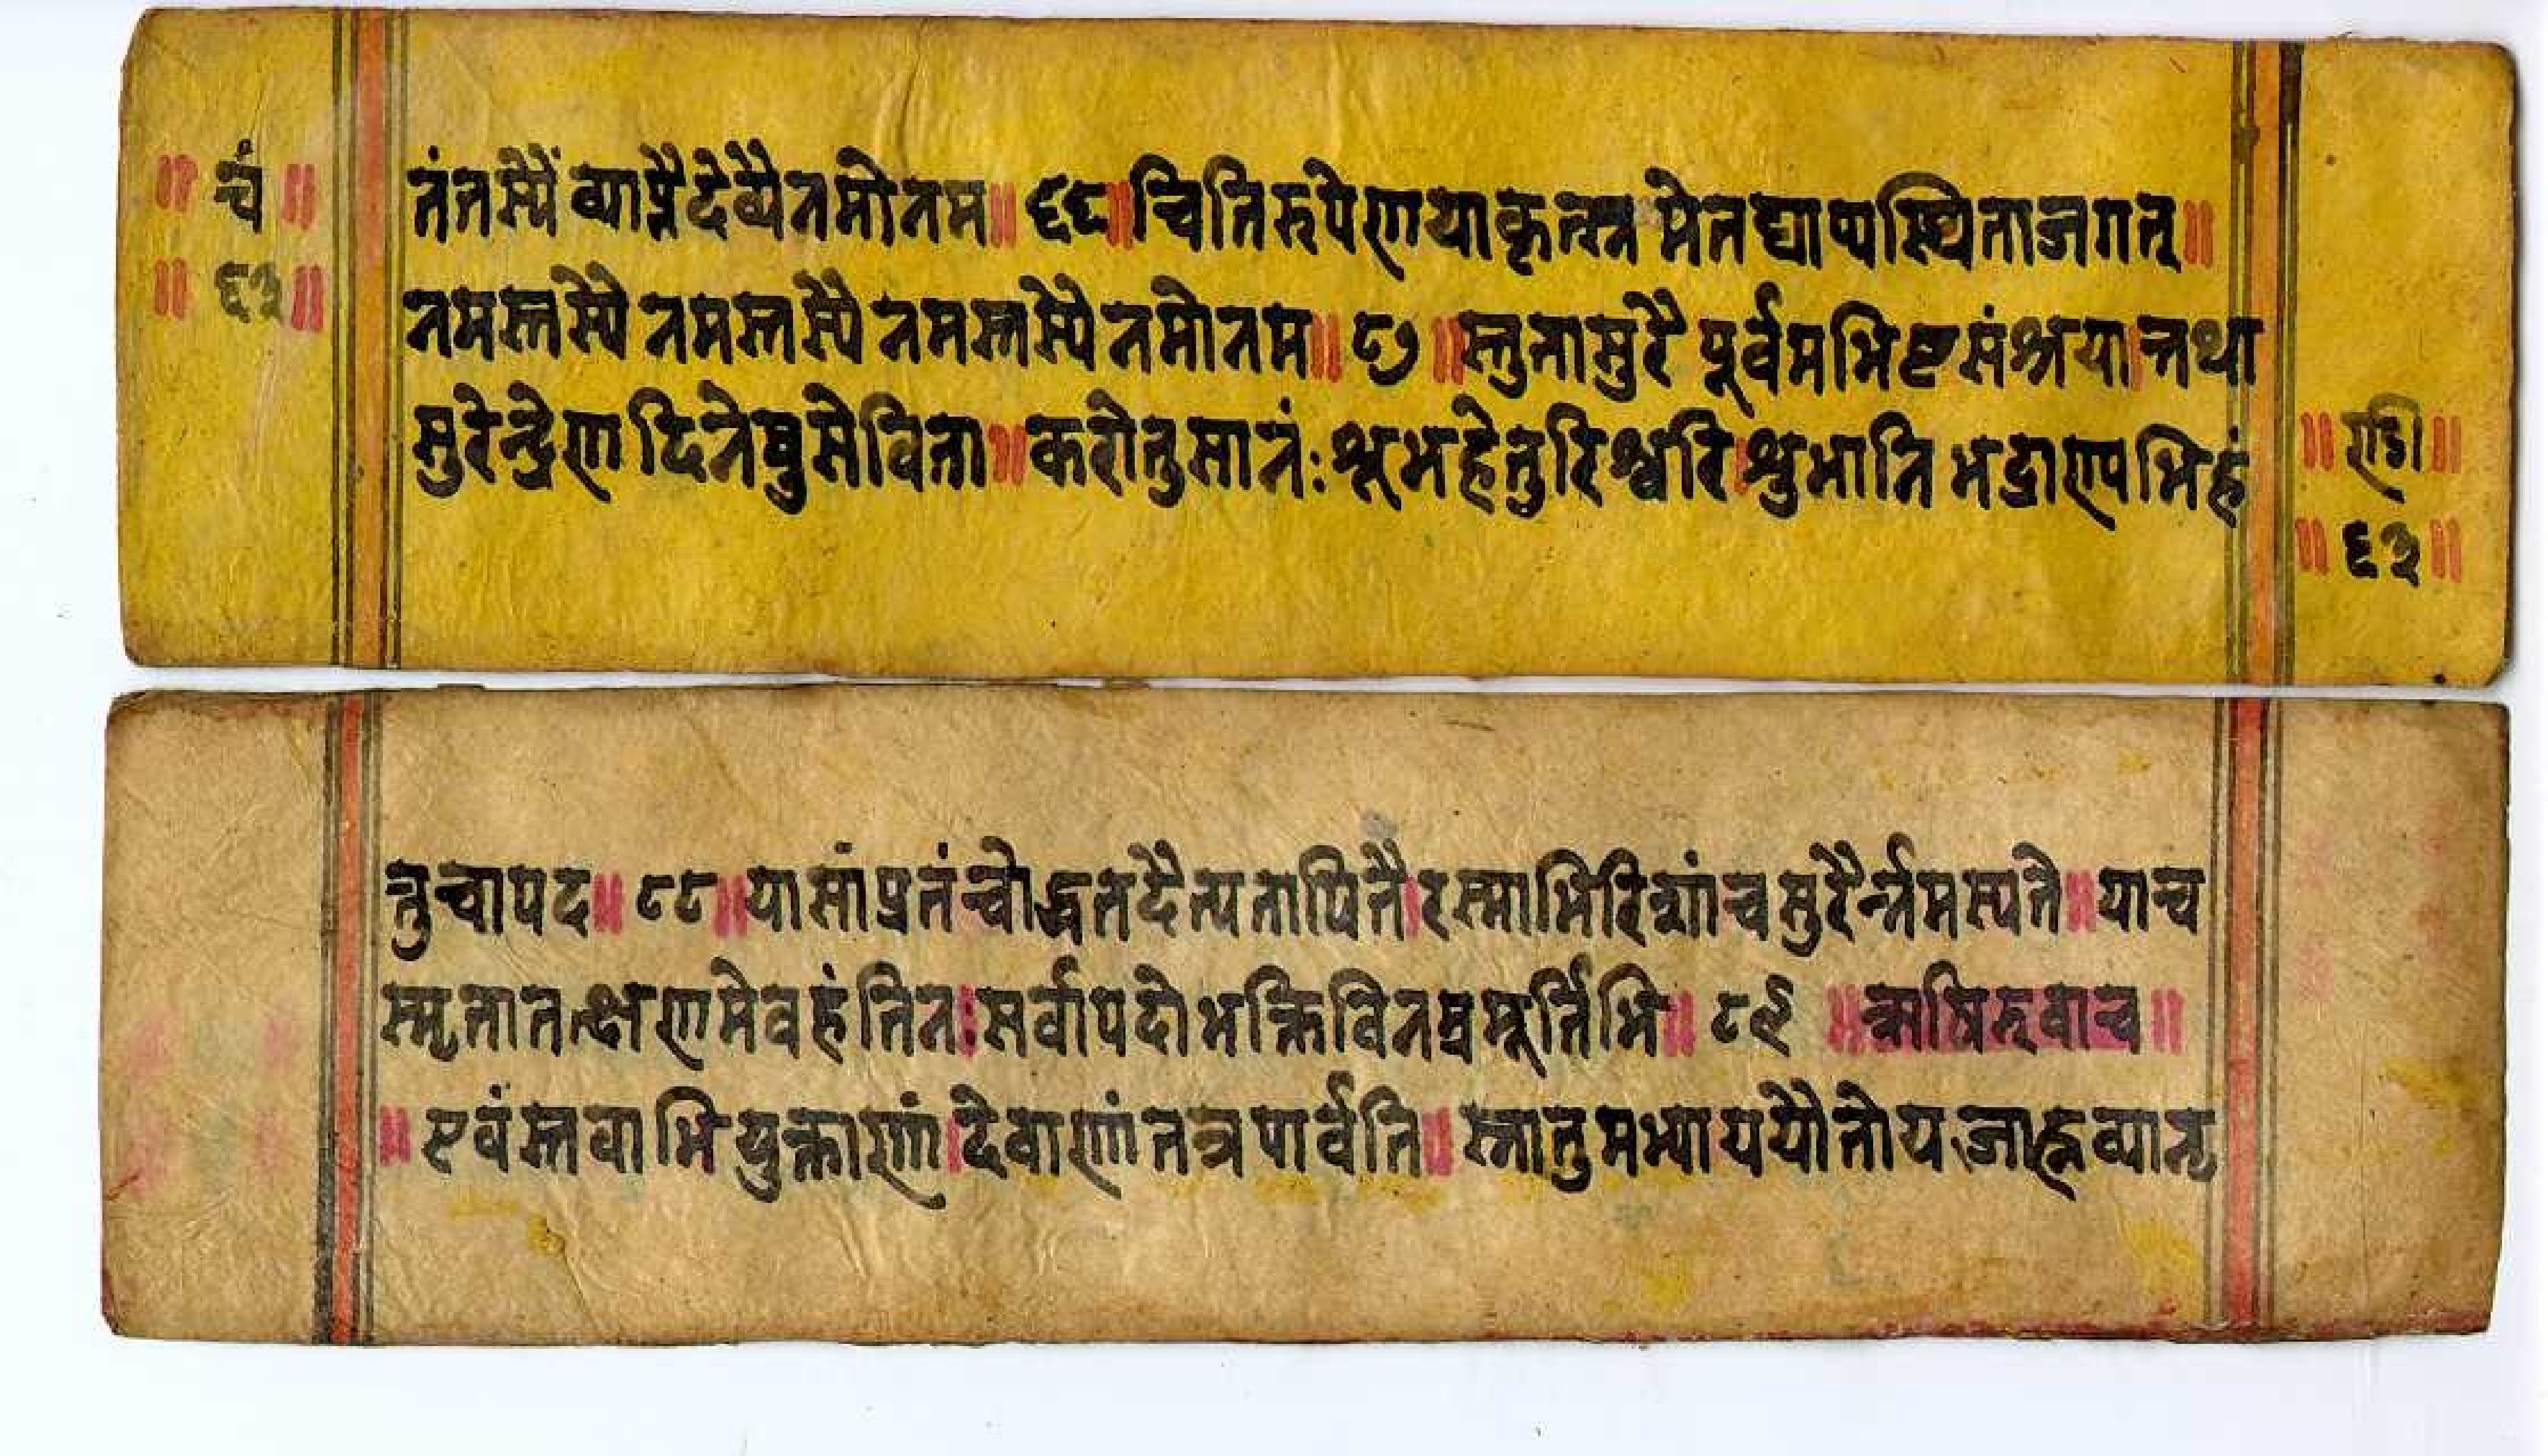 ॥ चं ॥
॥ ६३ ॥
तंतस्यैं व्याप्नैदेव्यैनमोनम॥ ६६॥चितिरुपेणयाकृत्स्न मेतद्याप्यस्थिताजगत्॥
नमस्तस्यै नमस्तस्यै नमस्तस्यै नमोनम॥ ८७ ॥स्तुतासुरै पूर्वमभिष्टसंश्रया।त्तथा
सुरेन्द्रेण दिनेषुसेविता॥करोतुसानं:श्रूभहेतुरिश्वरि।श्रुभानि भद्राण्यभिहं
॥ ण्डी॥
॥ ६३॥
तुचापद॥ ८८॥यासांप्रतंचोद्धतदैत्यतापितै।रस्माभिरिशांचसुरैर्न्नमस्यते॥याच
स्मृतातत्क्षणमेवहंतिन:सर्वापदोभक्तिविनम्रमूर्तिभि॥ ८९ ॥ऋषिरुवाच॥
॥ एवंस्तवाभियुक्ताणां।देवाणांतत्रपार्वति॥ स्नातुमभ्याययौतोयजाह्नव्यानृ